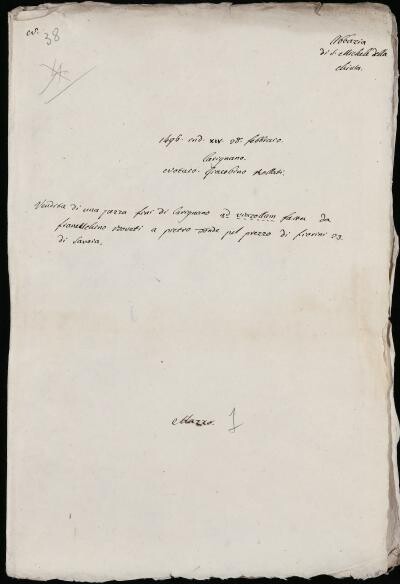 N.º 38
Abbazia
di S. Michele della
Chiusa.
1496. ind. XIV 28. febbraro.
Carignano.
Notaro Giacobino
Vendita di una pezza fini di Carignano fatta da
Franceschino a pietro pel prezzo di fiorini 23.
di Savoia.
Mazzo. 1